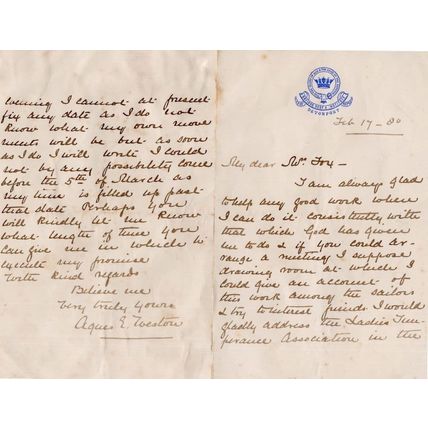 DEVONPORT
Feb 17 - 80
My dear Mrs. Fox -
I am always glad
to help any good work when
I can do it consistently with
that which God has given
me to do & if you could ar-
range a meeting I suppose
drawing room at which I
could give an account of
the work among the sailors
& try to interest friends I would
gladly address the Ladies Tem-
perance Association in the
evening I cannot at present
fix any date as I do not
know what my own move
ments will be but as soon
as I do I will write I could
not by any possibility come
before the 5th of March as
my time is filled up past
that date Perhaps you
will kindly let me know
what length of time you
can give me in which to
execute my promise
With kind regards
Believe me
Very truly yours
Agnes E. Weston